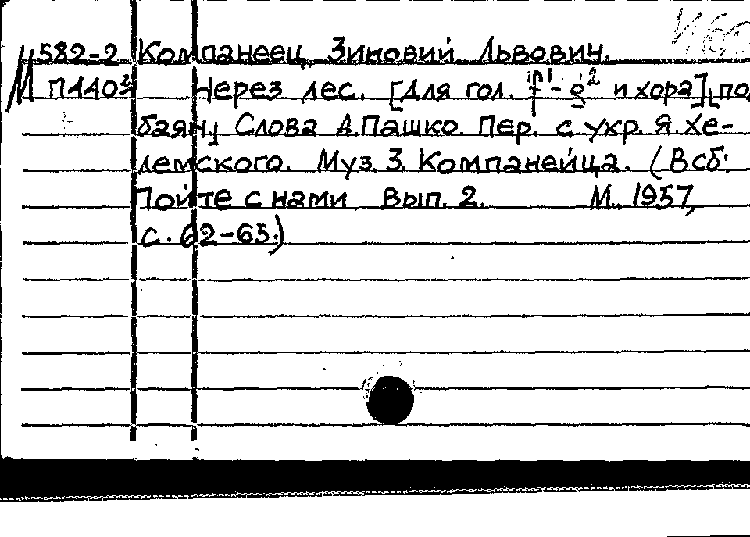 М 582-2 Компанеец, Зиновий Львович.
П1403 Через лес. [Для гол. f¹-g² и хора], по
баян, Слова А.Пашко. Пер. с укр. Я.Хе-
лемского. Муз. З. Компанейца. (В сб:
Пойте с нами Вып. 2. М. 1957,
с. 62-65.)